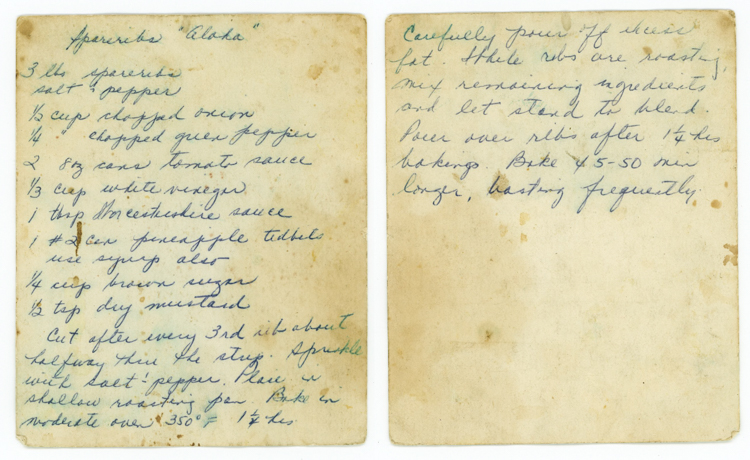 Spareribs "Aloha"
3 lbs spareribs
salt & pepper
1/2 cup chopped onion
1/4 " chopped green pepper
2 8oz cans tomato sauce
1/3 cup white vinegar
1 tbsp Worcestershire sauce
1 #2 can pineapple tidbits
use syrup also
1/4 cup brown sugar
1/2 tsp dry mustard
Cut after every 3rd rib about
halfway thru the strip. Sprinkle
with salt & pepper. Place in
shallow roasting pan Bake in
moderate oven 350° F 1 1/4 hrs
Carefully pour off excess
fat. While ribs are roasting,
mix remaining ingredients
and let stand to blend.
Pour over ribs after 1 1/4 hrs
bakings. Bake 45-50 min
longer, basting frequently.